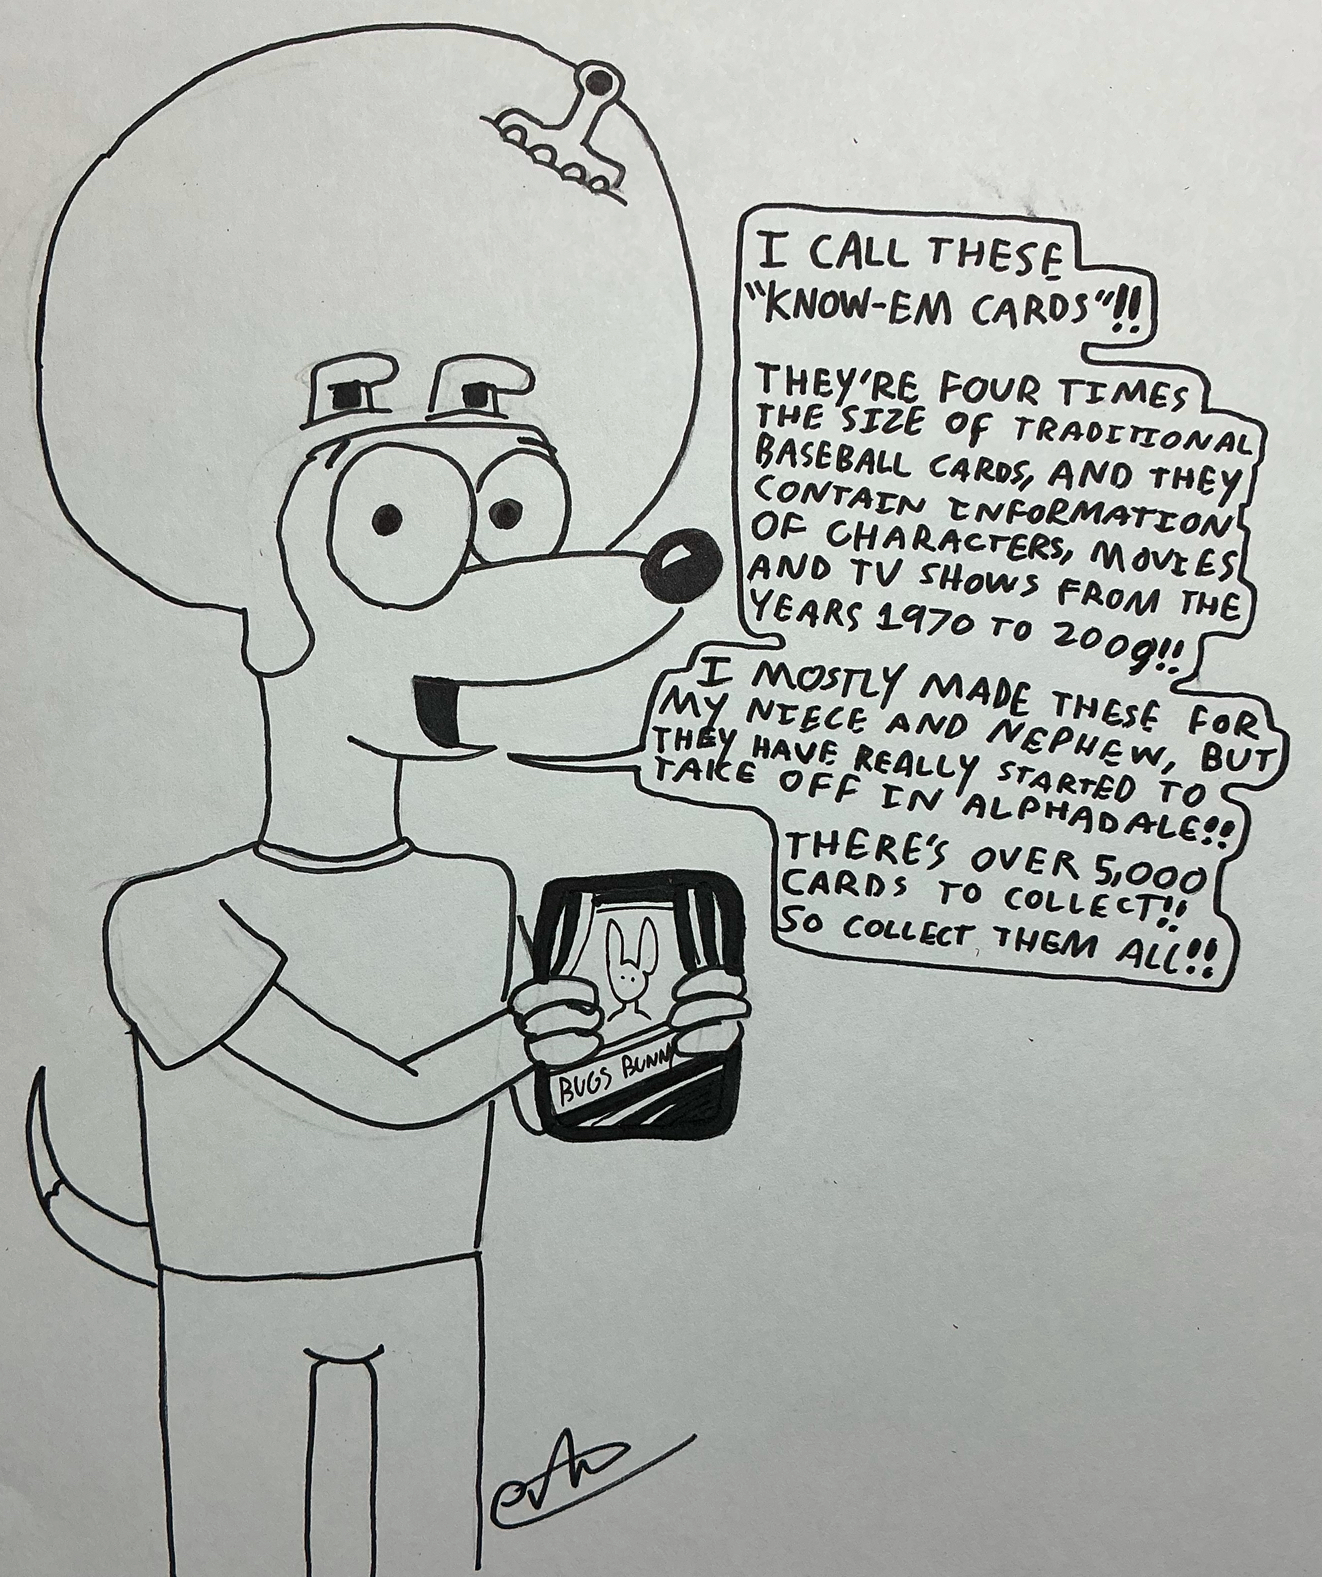 I CALL THESE
"KNOW-EM CARDS"!!
THEY'RE FOUR TIMES
THE SIZE OF TRADITIONAL
BASEBALL CARDS, AND THEY
CONTAIN INFORMATION
OF CHARACTERS, MOVIES
AND TV SHOWS FROM THE
YEARS 1970 TO 2009!!
I MOSTLY MADE THESE FOR
MY NIECE AND NEPHEW, BUT
THEY HAVE REALLY STARTED TO
TAKE OFF IN ALPHADALE!!
THERE'S OVER 5,000
CARDS TO COLLECT!!
SO COLLECT THEM ALL!!
BUGS BUNNY